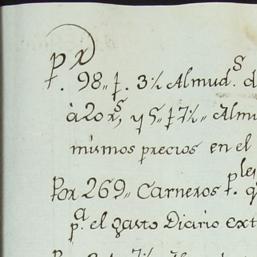 p.r
p. 98" f. 3½ Almud.s d
à 20 r.s, y 5" f 7½" Almu
mismos precios en el
Por 269" Carneros p.
p.a el gasto Diario ext